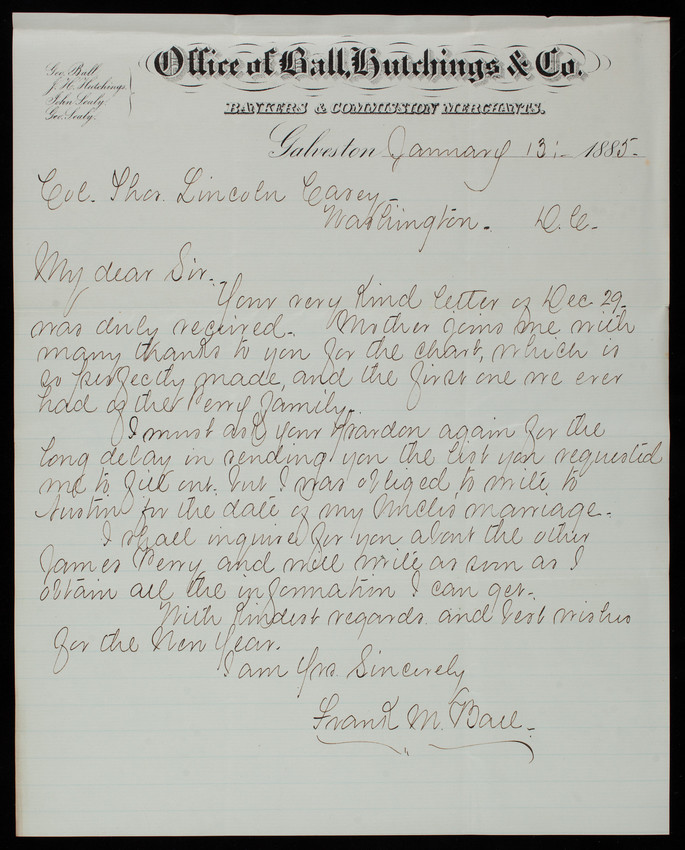 Geo. Ball.
J. H. Hutchings.
John Sealy.
Geo. Sealy.
Office of Ball, Hutchings & Co.
BANKERS & COMMISSION MERCHANTS.
Galveston January 13. 1885.
Col. Thos. Lincoln Casey_
Washington. D.C.
My dear Sir.
Your very kind letter of Dec. 29_
was duly received. Mother joins me with
many thanks to you for the chart, which is
so perfectly made, and the first one we ever
had of the Perry family.
I must ask your pardon again for the
long delay in sending you the list you requested
me to fill out. but I was obliged to write to
Austin for the date of my Uncle's marriage.
I shall inquire for you about the other
James Perry and will write as soon as I
obtain all the information I can get.
With kindest regards and best wishes
for the New Year.
I am Yrs. Sincerely
Frank M. Ball.